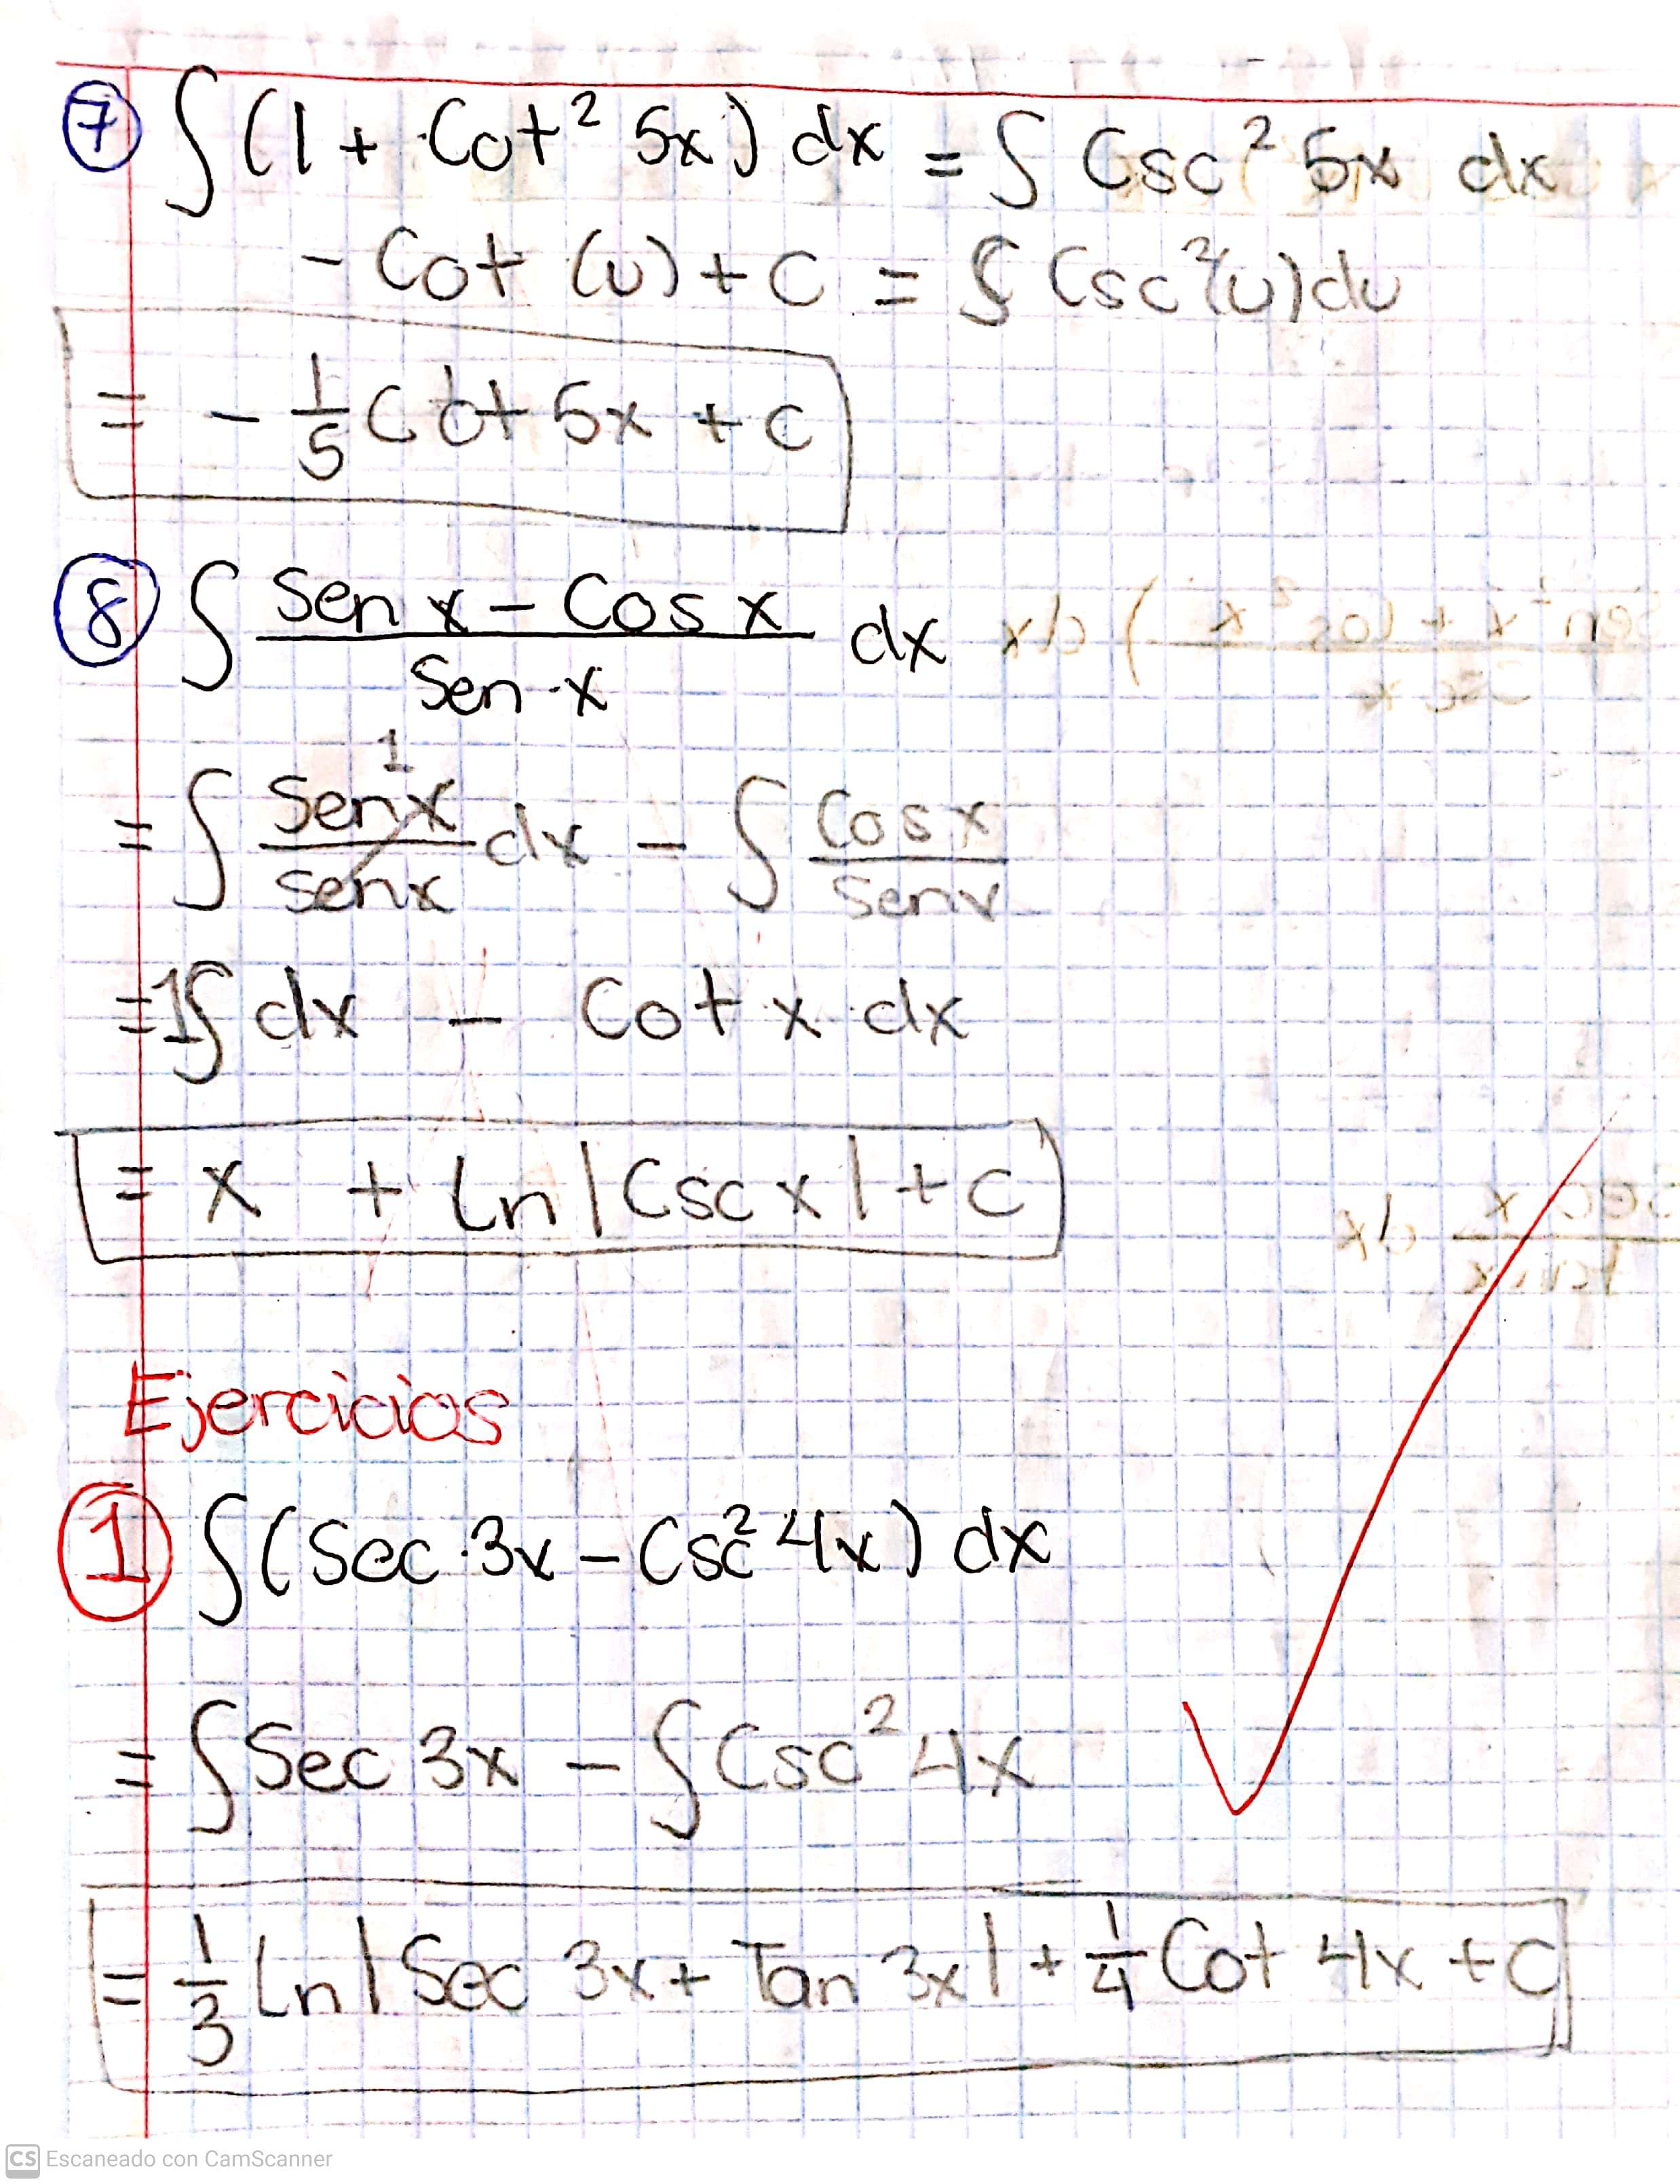 7 ∫ (1 + Cot² 5x) dx = ∫ Csc² 5x dx
- Cot (u) + C = ∫ Csc² (u) du
= - 1/5 Cot 5x + C
8 ∫ Sen x - Cos x / Sen x dx
= ∫ Sen x / Sen x dx - ∫ Cos x / Sen x
1
= 1∫ dx - Cot x dx
= x + Ln |Csc x| + C
Ejercicios
1 ∫ (Sec 3x - Csc² 4x) dx
= ∫ Sec 3x - ∫ Csc² 4x
= 1/3 Ln | Sec 3x + Tan 3x | + 1/4 Cot 4x + C
CS Escaneado con CamScanner